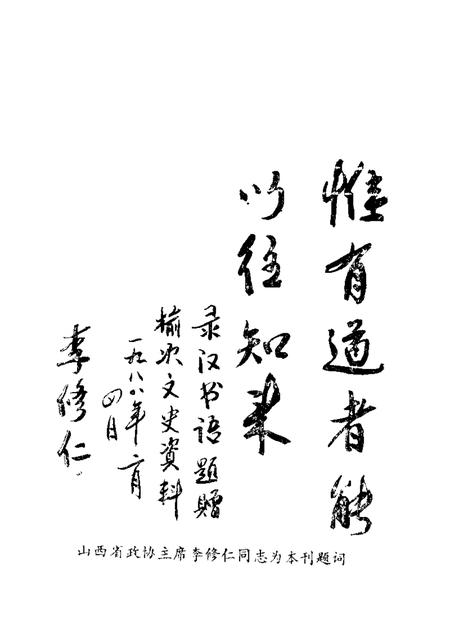 惟有道者能
以往知来
录汉书语题赠
榆次文史资料
一九八八年二月
四日
李修仁
山西省政协主席李修仁同志为本刊题词